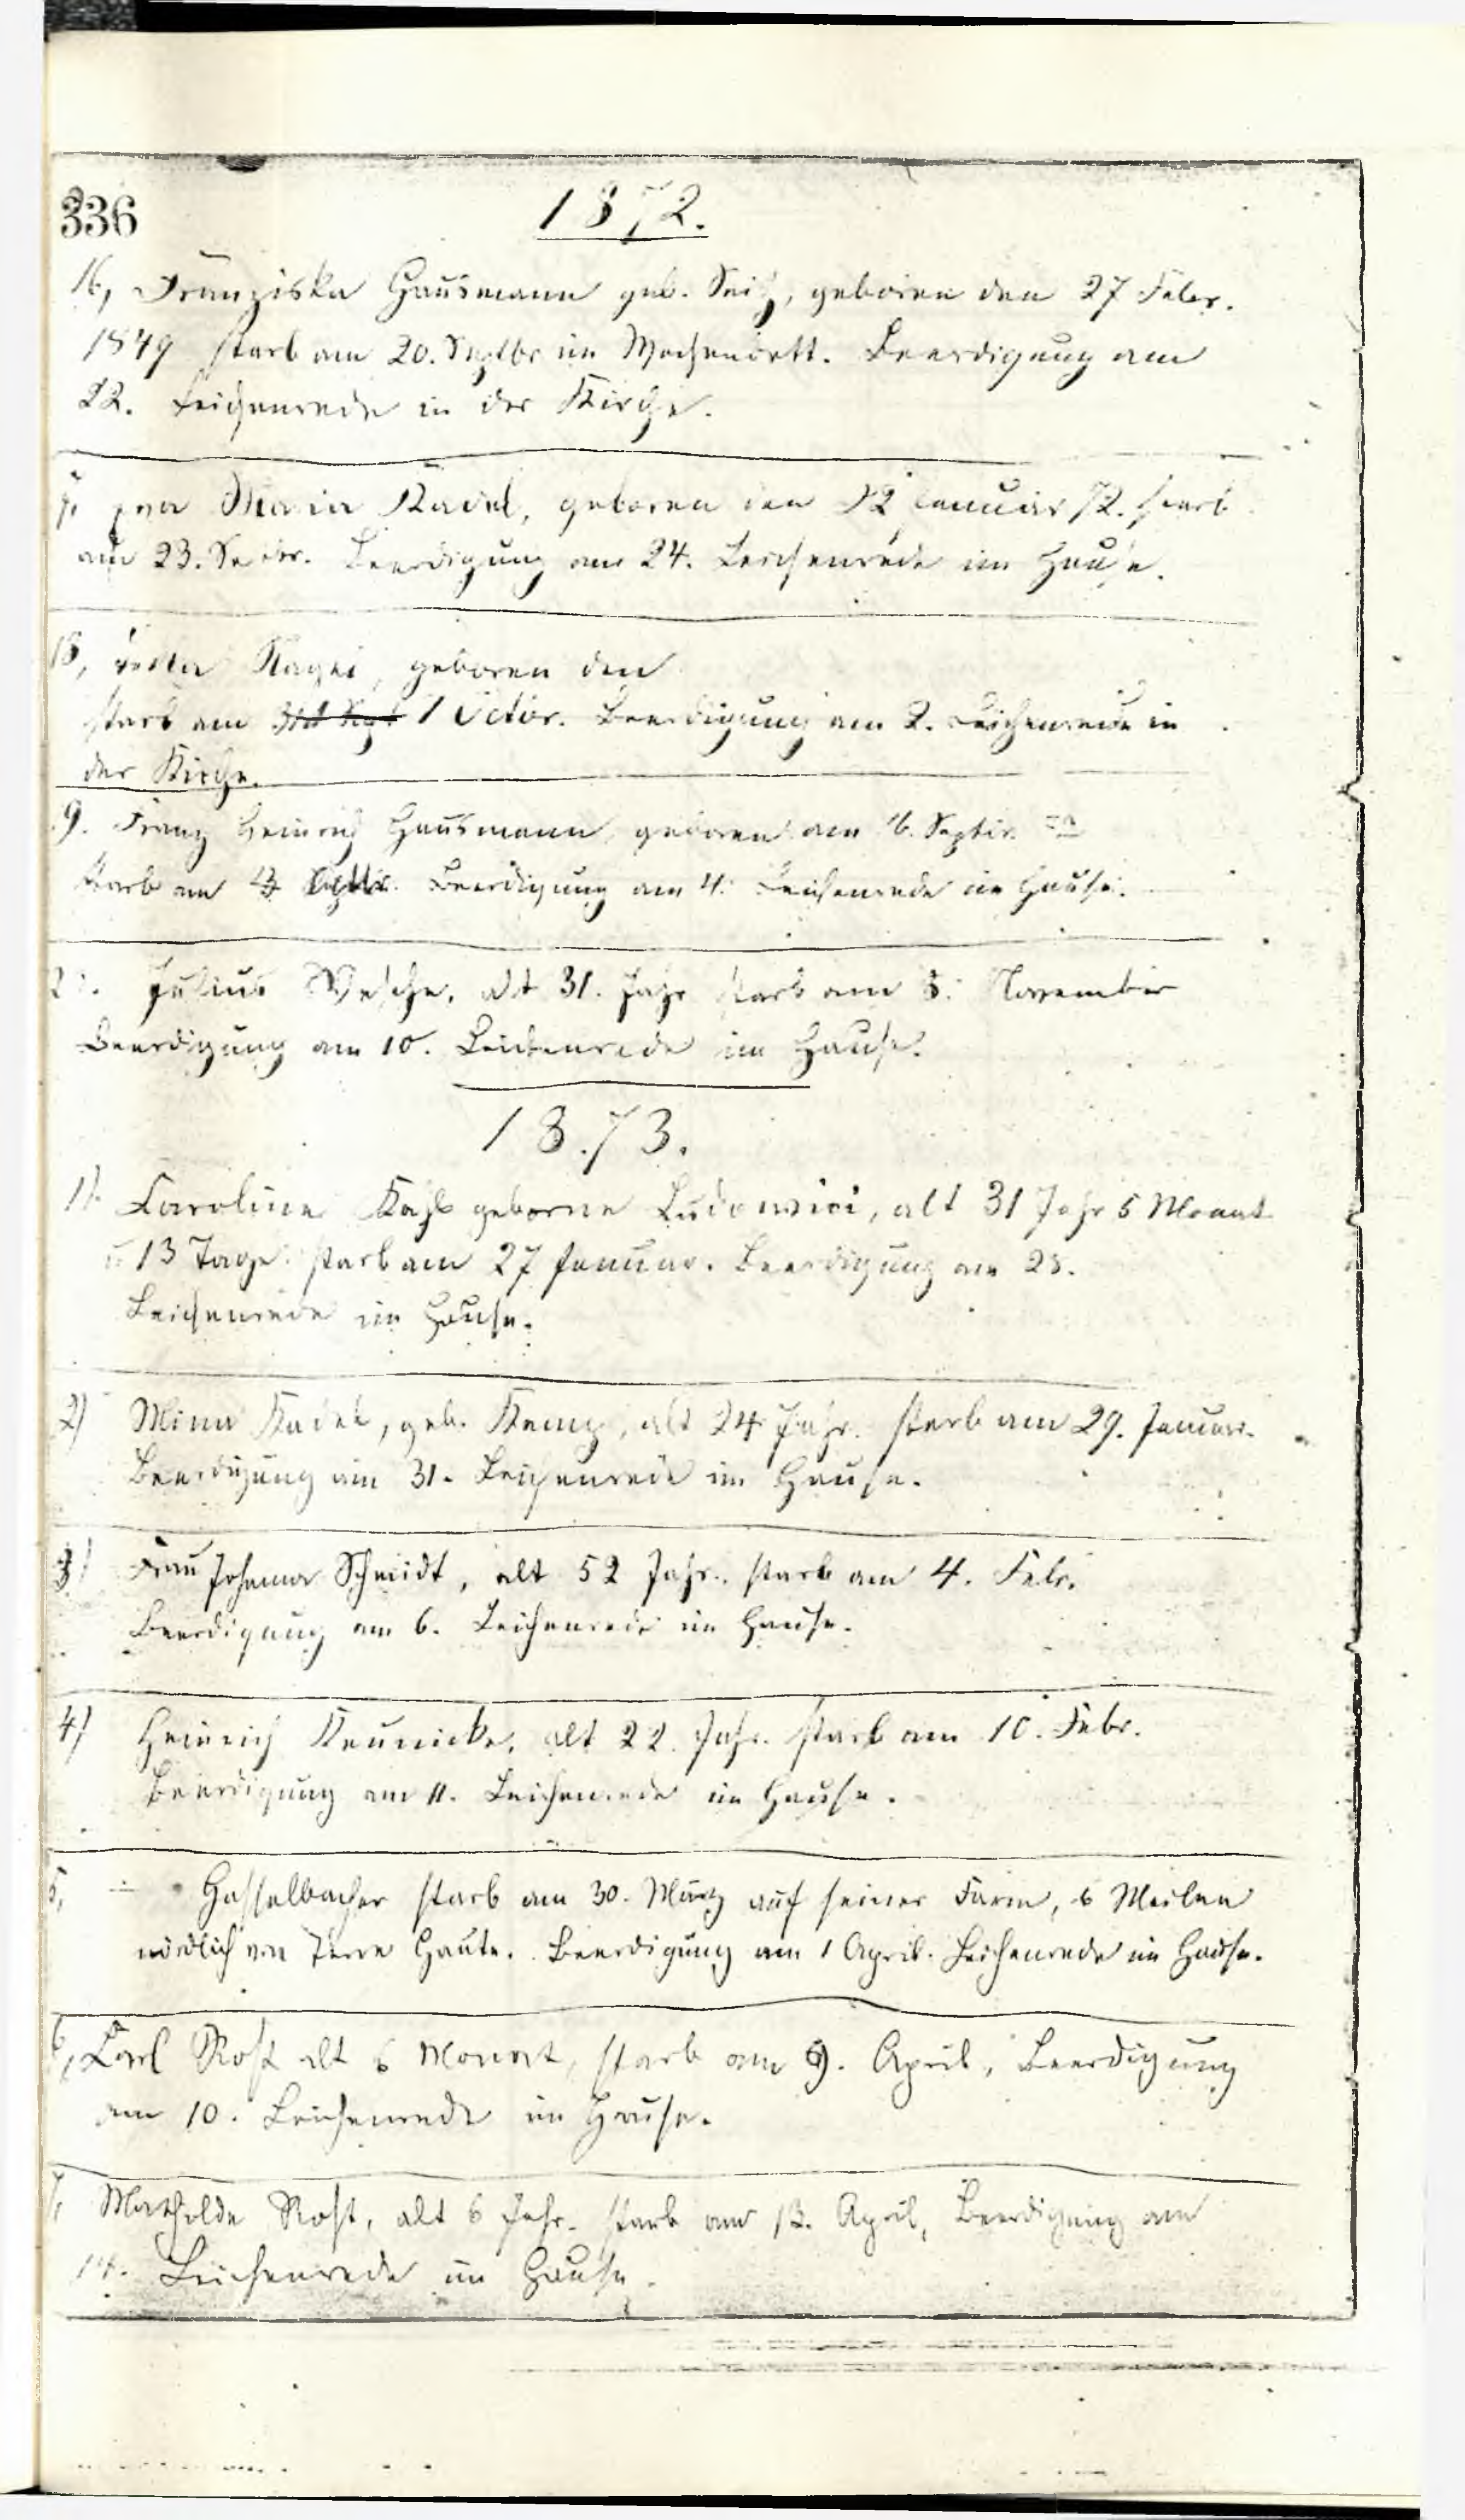 336
1872.
16, Franziska Hausmann geb. Seitz, geboren den 27 Febr.
1849 starb am 20. Septbr im Wochenbett. Beerdigung am
22. Leichenrede in der Kirche.
Maria Kadel, geboren den 22 Januar 72. starb
am 23. Beerdigung am 24. Leichenrede im Hause.
18, geboren den
starb am 1 Octbr. Beerdigung am 2. Leichenrede in
der Kirche.
9. Franz Heinrich Hausmann, geboren am 16. Septbr.
starb am Beerdigung am 4. Leichenrede im Hause.
Julius alt 31. Jahr starb am 8. November
Beerdigung am 10. Leichenrede im Hause.
1873.
1) Caroline Kahl geborne Ludowici, alt 31 Jahr 5 Monat
u 13 Tage. starb am 27 Januar. Beerdigung am 28.
Leichenrede im Hause.
2) Mina Kadel, geb. alt 24 Jahr. starb am 29. Januar.
Beerdigung am 31. Leichenrede im Hause.
3) Frau Johanna Schmidt, alt 52 Jahr. starb am 4. Febr.
Beerdigung am 6. Leichenrede im Hause.
4) Heinrich alt 22. Jahr. starb am 10. Febr.
Beerdigung am 11. Leichenrede im Hause.
5, Hasselbacher starb am 30. März auf seiner Farm, 6 Meilen
nördlich von Terre Haute. Beerdigung am 1 April. Leichenrede im Hause.
6, Carl Rost alt 6 Monat, starb am 9. April, Beerdigung
am 10. Leichenrede im Hause.
7, Mathilde Rost, alt 6 Jahr. starb am 13. April, Beerdigung am
14. Leichenrede im Hause.